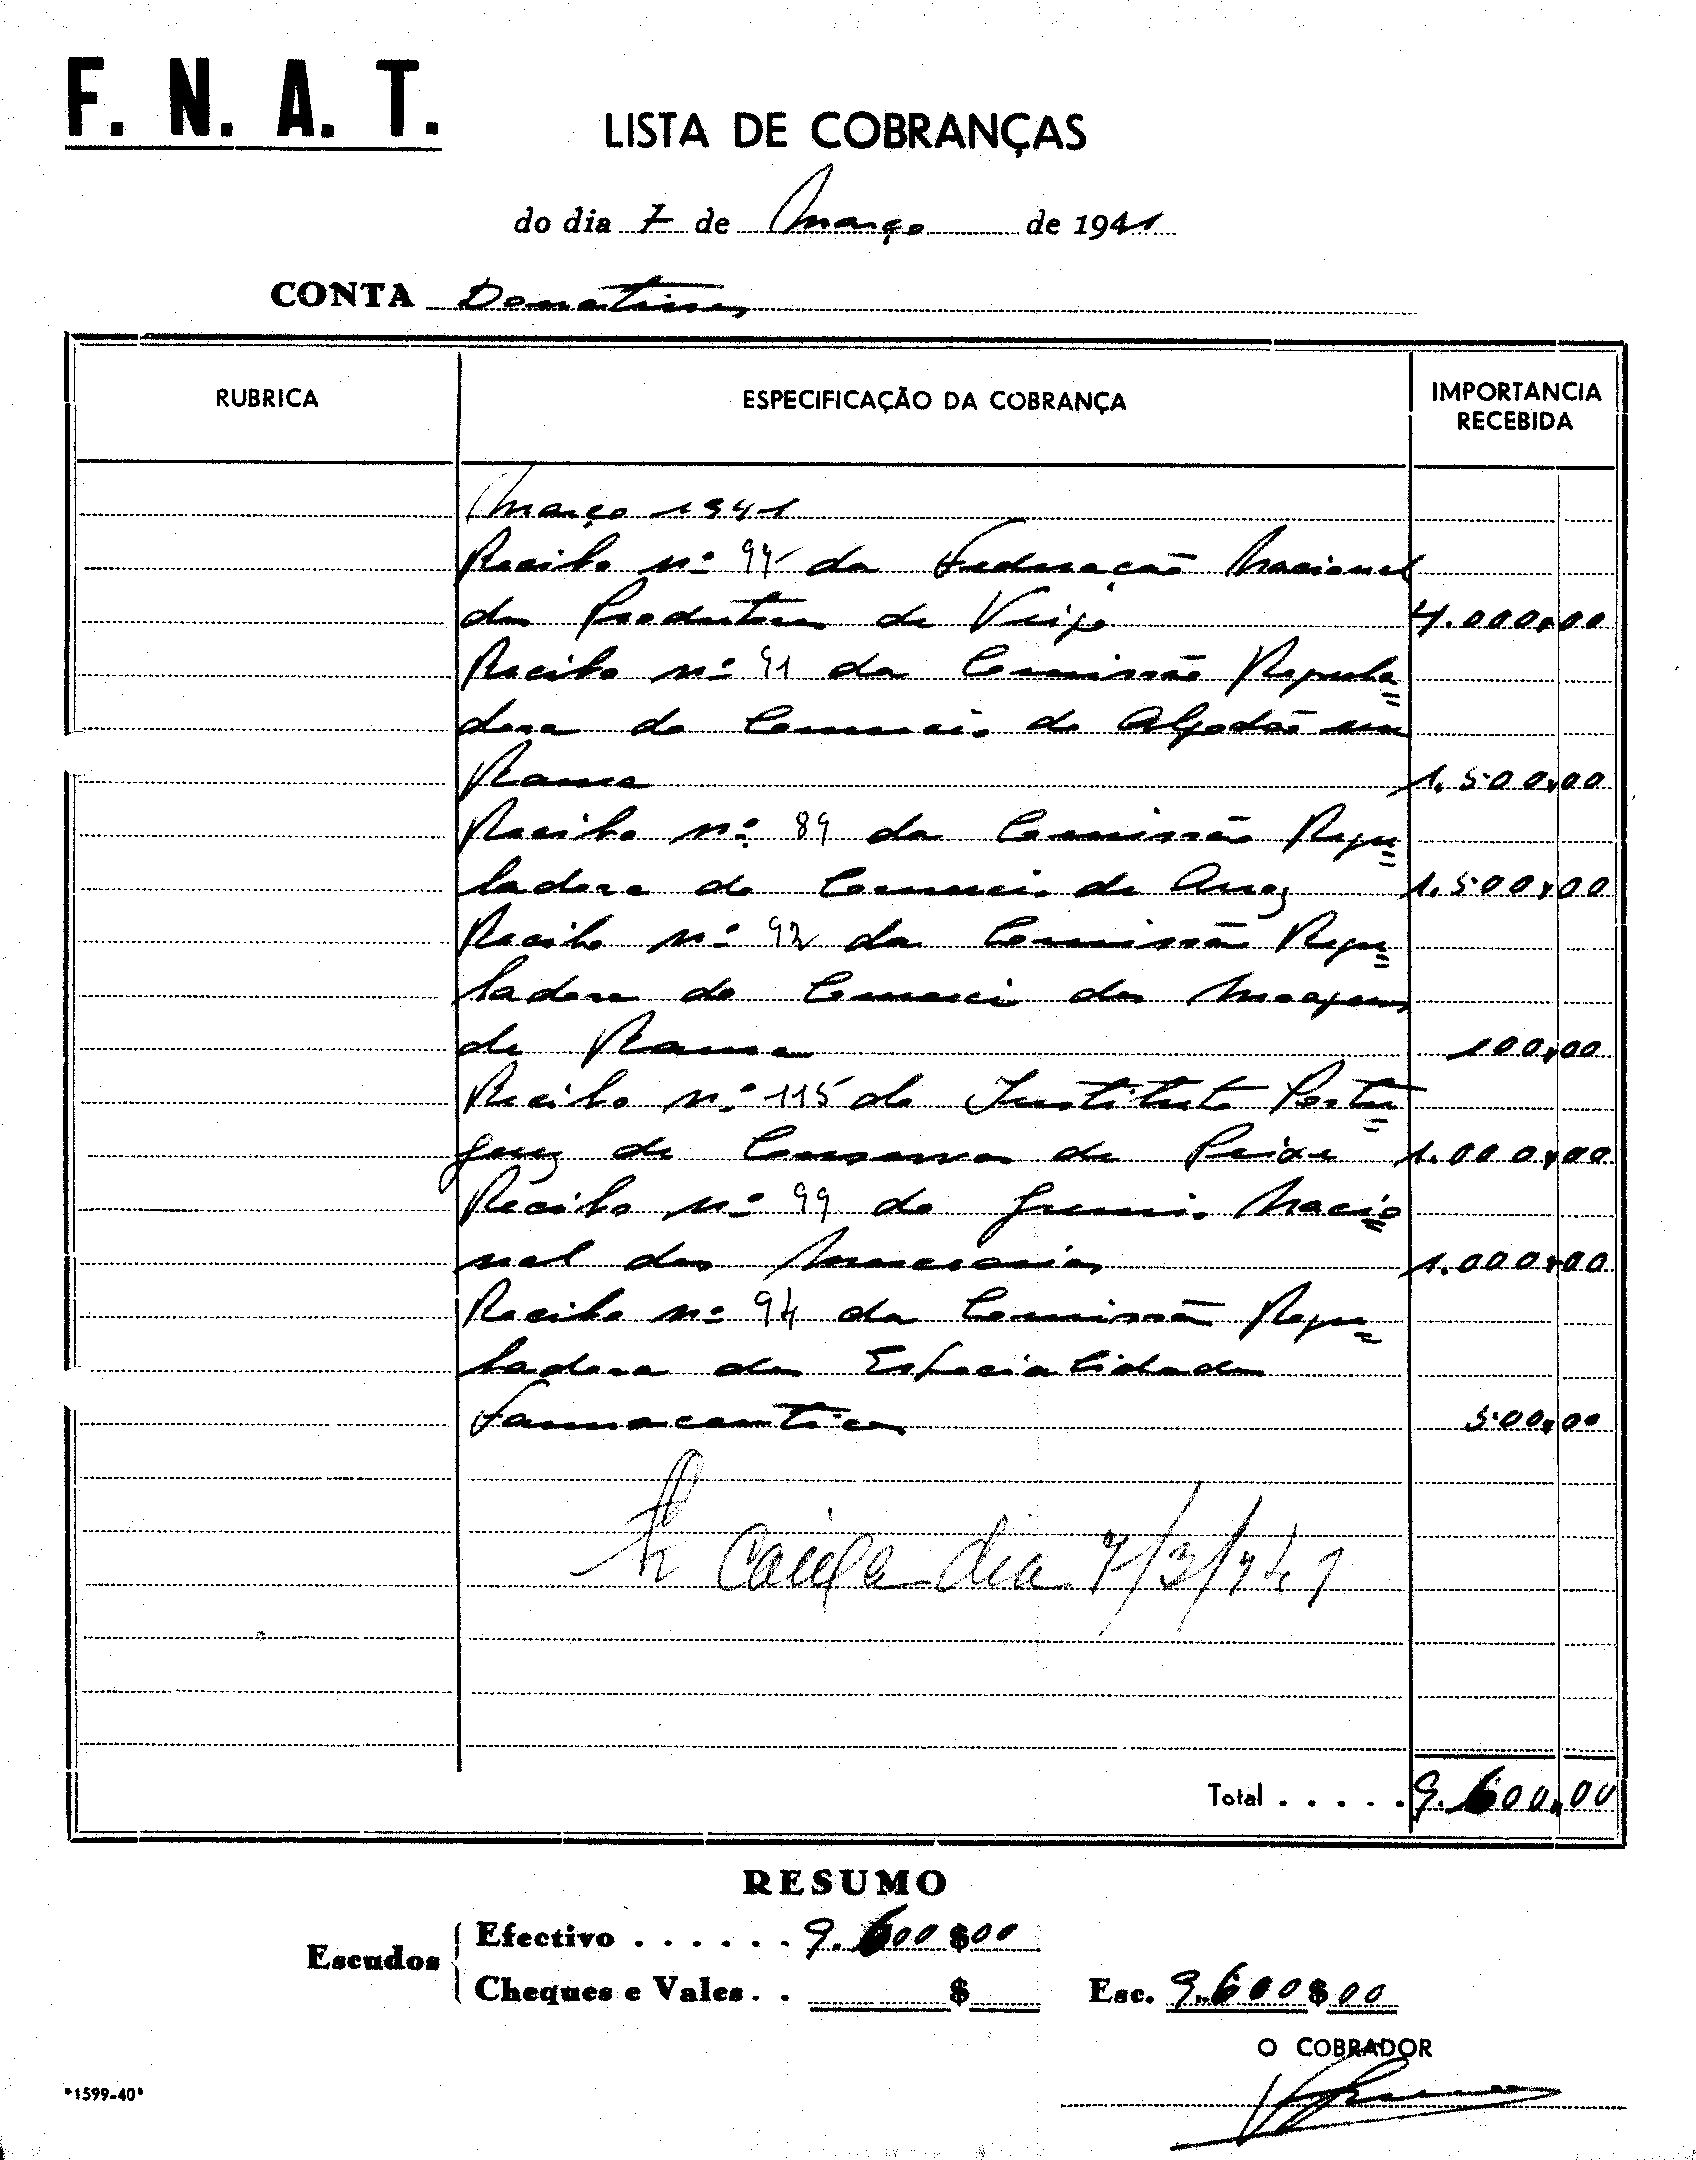 F. N. A. T.
LISTA DE COBRANÇAS
do dia 7 de Março de 1941
CONTA Donativos
RUBRICA ESPECIFICAÇÃO DA COBRANÇA IMPORTANCIA RECEBIDA
Março 1941
Recibo nº da Federação Nacional
dos Produtores de Trigo 4.000,00
Recibo nº 91 da Comissão Regula=
dora do Comercio de Algodão em
Rama 1.500,00
Recibo nº 89 da Comissão Regu=
ladora do Comercio de Arroz 1.500,00
Recibo nº 92 da Comissão Regu=
ladora do Comercio das Moagens
de Rama 100,00
Recibo nº 115 do Instituto Portu=
guez de Conservas de Peixe 1.000,00
Recibo nº 99 do Gremio Nacio=
nal dos 1.000,00
Recibo nº 94 da Comissão Regu=
ladora das Especialidades
Farmaceuticas 500,00
Caixa dia 7/3/941
Total . . . . . 9.600,00
RESUMO
Escudos
Efectivo . . . . . . 9.600$00
Cheques e Vales . . $ Esc. 9.600$00
O COBRADOR
*1599-40*